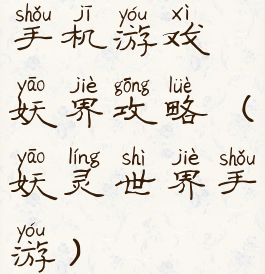 shǒu jī yóu xì
手机游戏
yāo jiè gōng lüè
妖界攻略（
yāo líng shì jiè shǒu
妖灵世界手
yóu
游）